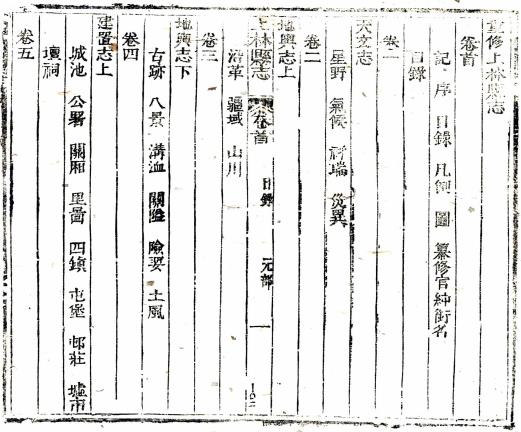 重修上林縣志
卷首
記 序 目錄 凡例 圖 纂修官紳銜名
目錄
卷一
天文志
星野 氣候 祥瑞 災異
卷二
地輿志上
沿革 疆域 山川
上林縣志 卷首 目錄 元部 一
卷三
地輿志下
古跡 八景 溝洫 關隘 險要 土風
卷四
建置志上
城池 公署 關廂 里圖 四鎮 屯堡 邨莊 墟市
壇祠
卷五